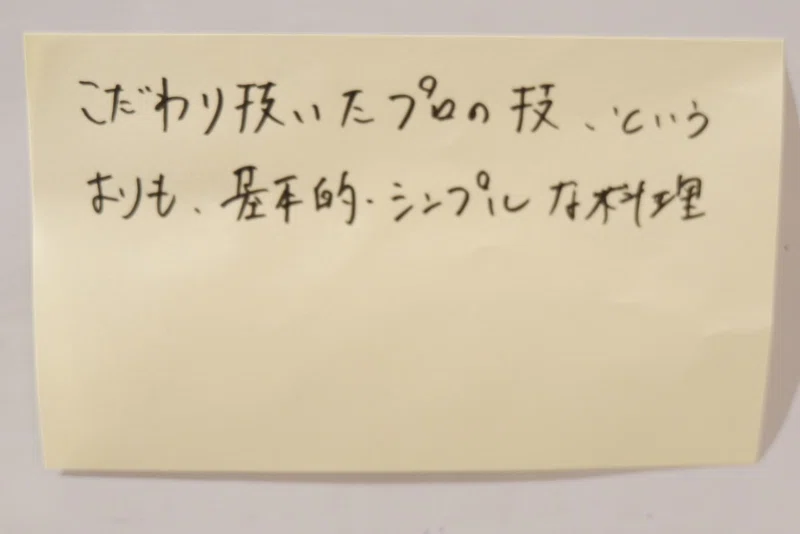 こだわり技いたプロの技、という
よりも、基本的・シンプルな料理